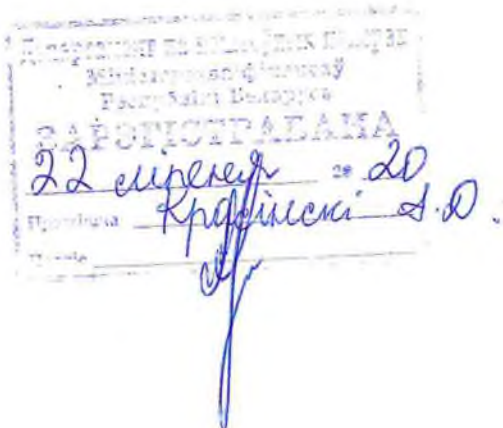 Дэпартамент па каштоўных паперах
Міністэрства фінансаў
Рэспублікі Беларусь
ЗАРЭГІСТРАВАНА
22 ліпеня 20 20
Прозвішча Красінскі А.О.
Подпіс